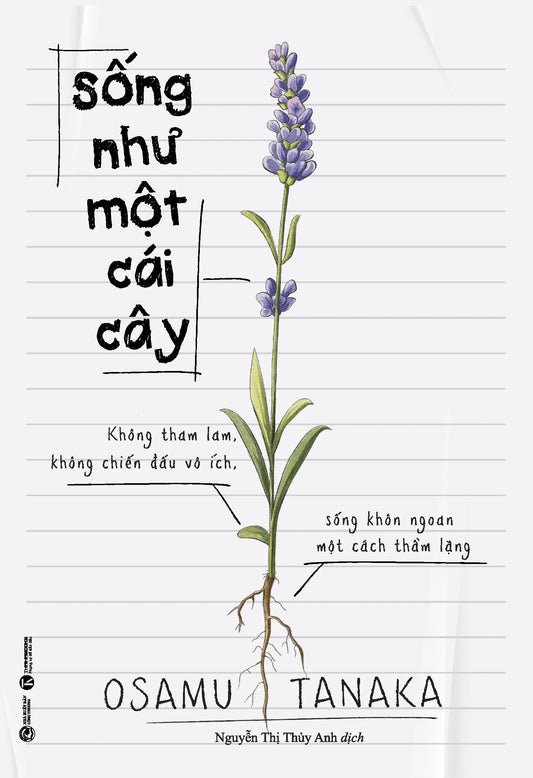 sống
như
một
cái
cây
Không tham lam,
không chiến đấu vô ích,
sống khôn ngoan
một cách thầm lặng
OSAMU TANAKA
Nguyễn Thị Thùy Anh dịch